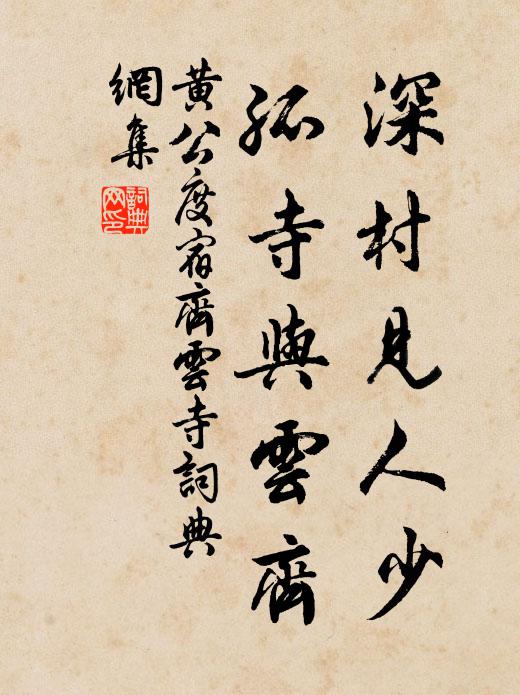 深村見人少
孤寺與雲齊
黃公度宿齊雲寺詞典
網集
詞典
网印